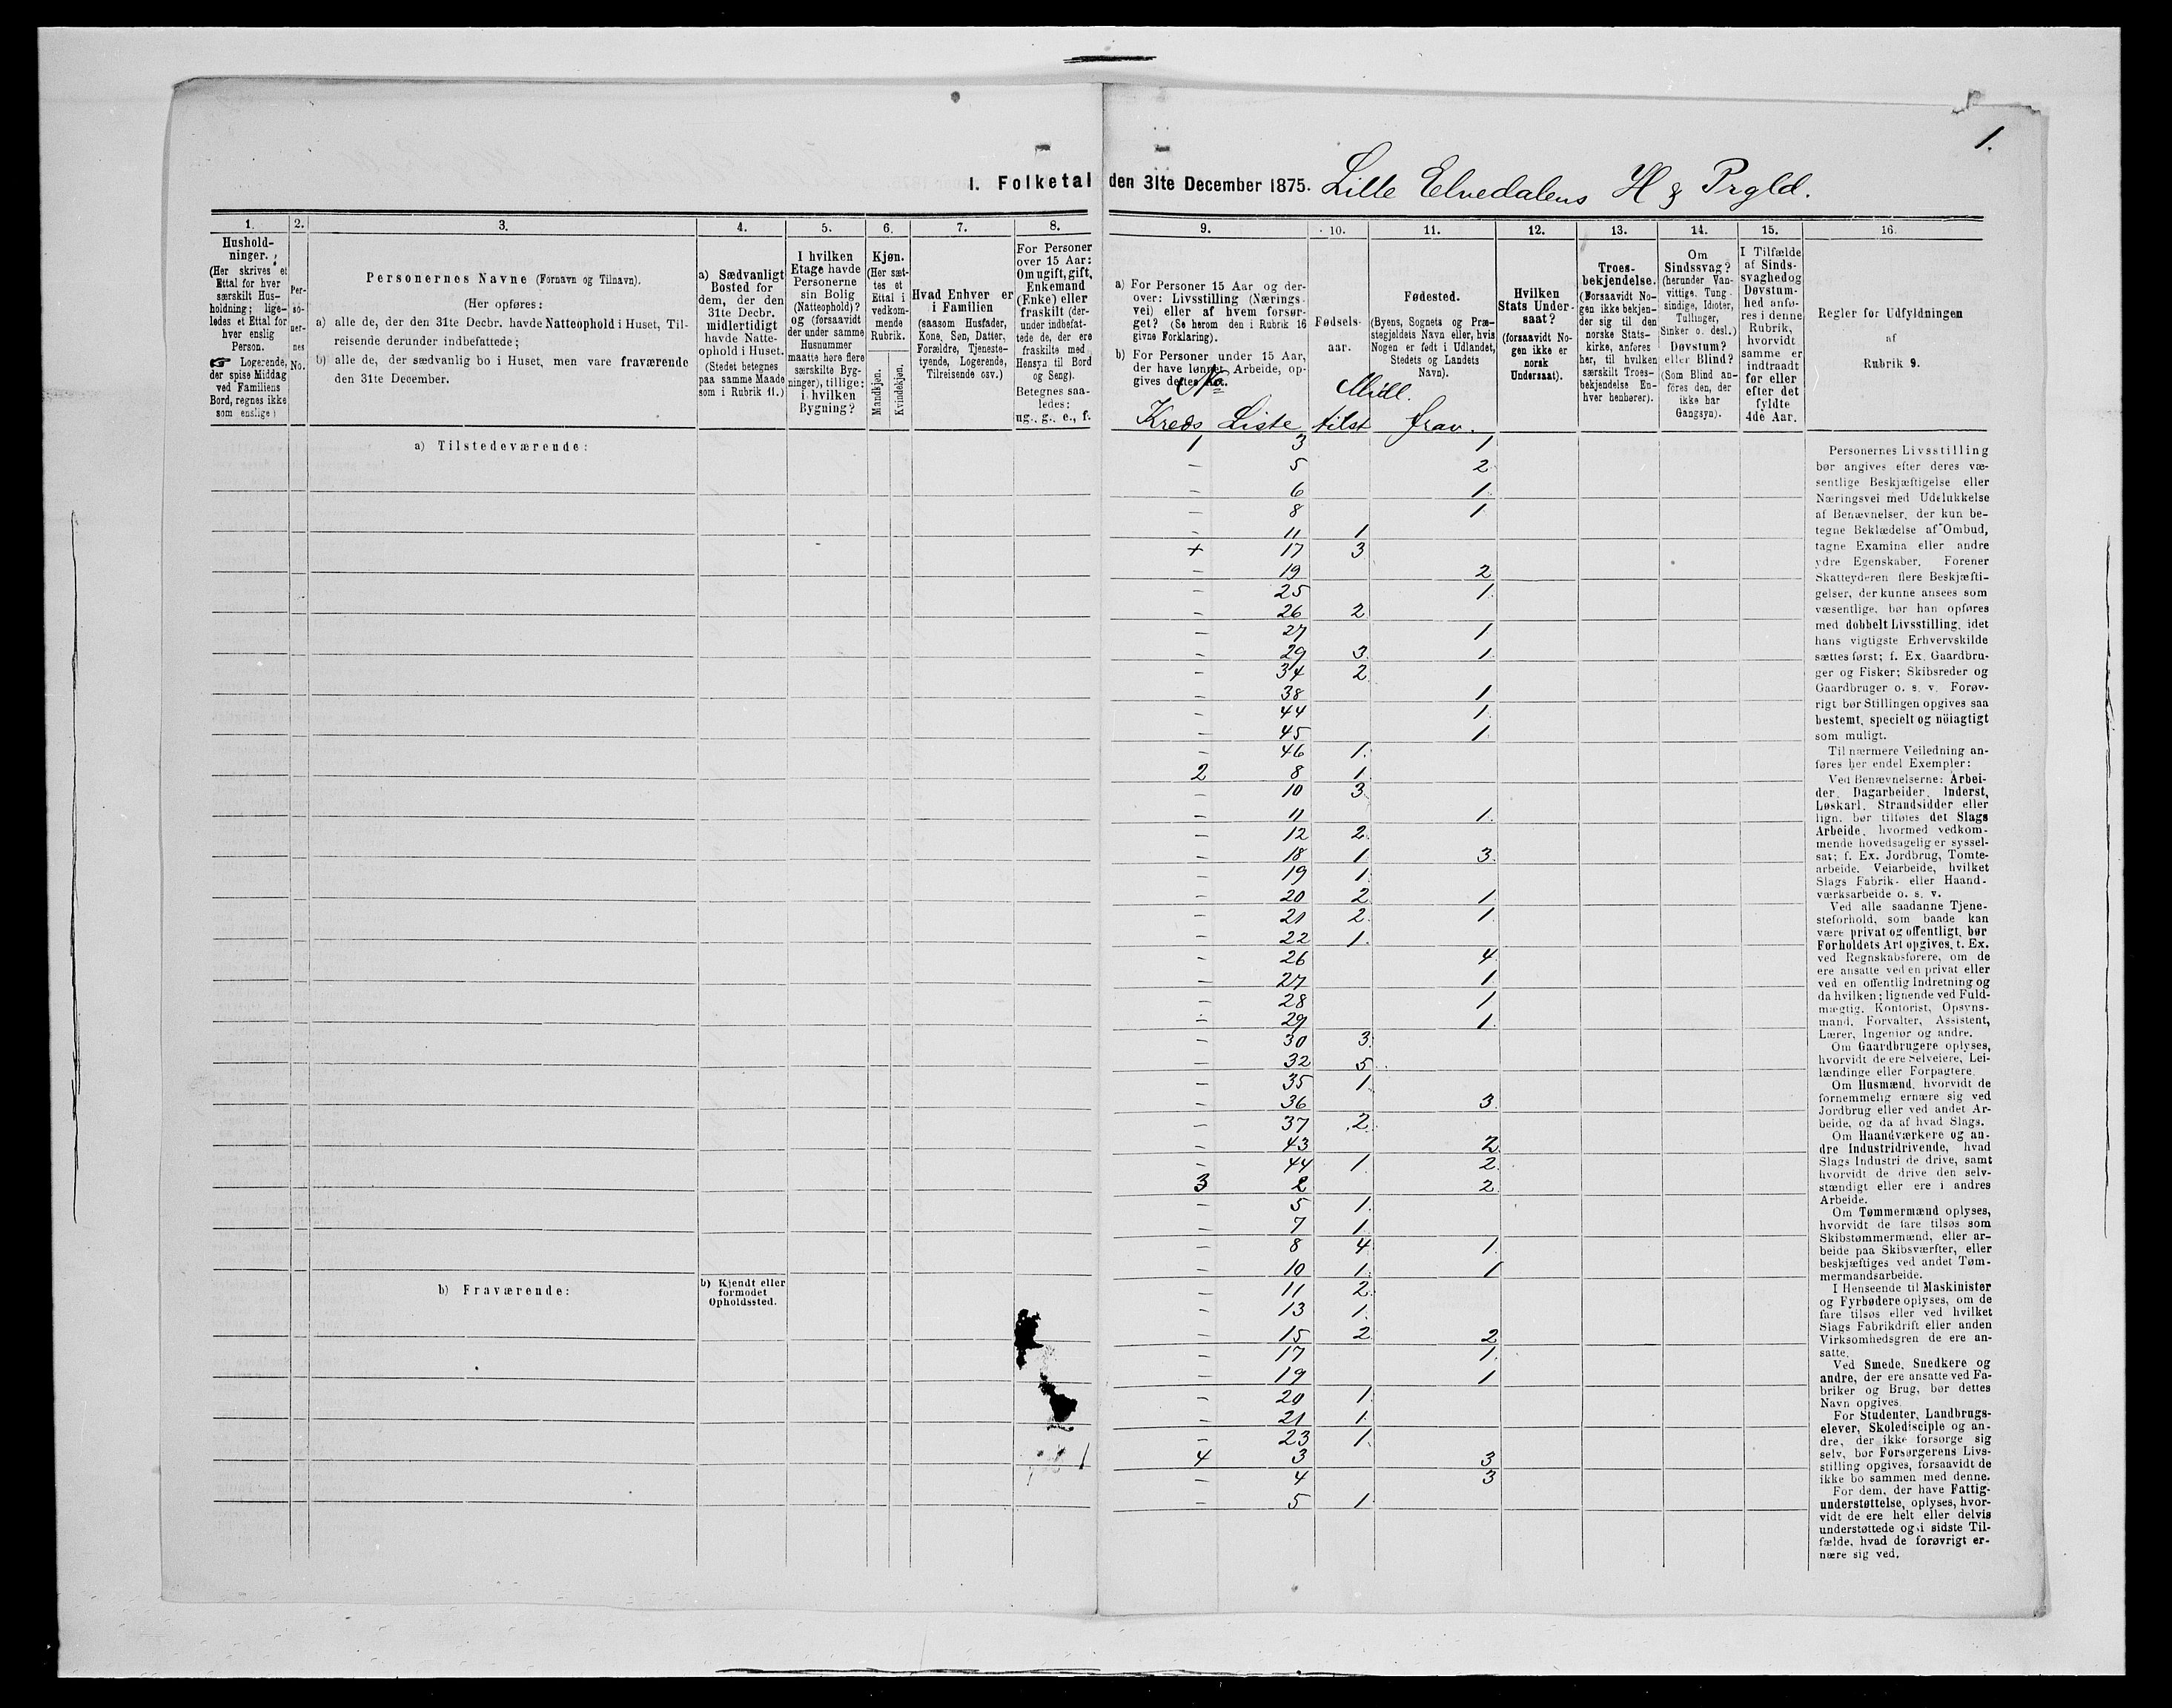 1.
I. Folketal den 31te December 1875. Lille Elvedalens H & Prgld.
1.
Hushold-
ninger.
(Her skrives et
Ettal for hver
særskilt Hus-
holdning; lige-
ledes et Ettal for
hver enslig
Person.
☞ Logerende,
der spise Middag
ved Familiens
Bord, regnes ikke
som enslige)
2.
Per-
so-
ner-
nes
No.
3.
Personernes Navne (Fornavn og Tilnavn).
(Her opføres:
a) alle de, der den 31te Decbr. havde Natteophold i Huset, Til-
reisende derunder indbefattede;
b) alle de, der sædvanlig bo i Huset, men vare fraværende
den 31te December.
4.
a) Sædvanligt
Bosted for
dem, der den
31te Decbr.
midlertidigt
havde Natte-
ophold i Huset.
(Stedet betegnes
paa samme Maade
som i Rubrik 11.)
5.
I hvilken
Etage havde
Personerne
sin Bolig
(Natteophold)?
og (forsaavidt
der under samme
Husnummer
maatte høre flere
særskilte Byg-
ninger), tillige:
i hvilken
Bygning?
6.
Kjøn.
(Her sæt-
tes et
Ettal i
vedkom-
mende
Rubrik.
Mandkjøn.
Kvindekjøn.
7.
Hvad Enhver er
i Familien
(saasom Husfader,
Kone, Søn, Datter,
Forældre, Tjeneste-
tyende, Logerende,
Tilreisende osv.)
8.
For Personer
over 15 Aar:
Om ugift, gift,
Enkemand
(Enke) eller
fraskilt (der-
under indbefat-
tede de, der ere
fraskilte med
Hensyn til Bord
og Seng).
Betegnes saa-
ledes:
ug., g., e., f.
9.
a) For Personer 15 Aar og der-
over: Livsstilling (Nærings-
vei) eller af hvem forsør-
get? (Se herom den i Rubrik 16
givne Forklaring).
b) For Personer under 15 Aar,
der have lønnet Arbeide, op-
gives dettes Art.
10.
Fødsels-
aar.
11.
Fødested.
(Byens, Sognets og Præ-
stegjeldets Navn eller, hvis
Nogen er født i Udlandet,
Stedets og Landets
Navn).
12.
Hvilken
Stats Under-
saat?
(forsaavidt No-
gen ikke er
norsk
Undersaat).
13.
Troes-
bekjendelse.
(Forsaavidt No-
gen ikke bekjen-
der sig til den
norske Stats-
kirke, anføres
her, til hvilken
særskilt Troes-
bekjendelse En-
hver henhører).
14.
Om
Sindssvag?
(herunder Van-
vittige, Tung-
sindige, Idioter,
Tullinger,
Sinker o. desl.)
Døvstum?
eller Blind?
(Som Blind an-
føres den, der
ikke har
Gangsyn).
15.
I Tilfælde
af Sinds-
svaghed og
Døvstum-
hed anfø-
res i denne
Rubrik,
hvorvidt
samme er
indtraadt
før eller
efter det
fyldte
4de Aar.
16.
Regler for Udfyldningen
af
Rubrik 9.
No
Midl.
Kreds Liste tilst frav.
a) Tilstedeværende:
1 3 1
– 5 2
– 6 1
– 8 1
– 11 1
+ 17 3
– 19 2
– 25 1
– 26 2
– 27 1
– 29 3 1
– 34 2
– 38 1
– 44 1
– 45 1
– 46 1
2 8 1
– 10 3
– 11 1
– 12 2
– 18 1 3
– 19 1
– 20 2 1
– 21 2 1
– 22 1
– 26 4
– 27 1
– 28 1
– 29 1
– 30 3
– 32 5
– 35 1
– 36 3
– 37 2
– 43 2
– 44 1 2
3 2 2
– 5 1
– 7 1
– 8 4 1
– 10 1 1
– 11 2
– 13 1
– 15 2 2
– 17 1
– 19 1
– 20 1
– 21 1
– 23 1
4 3 3
– 4 3
– 5 1
b) Fraværende:
b) Kjendt eller
formodet
Opholdssted.
Personernes Livsstilling
bør angives efter deres væ-
sentlige Beskjæftigelse eller
Næringsvei med Udelukkelse
af Benævnelser, der kun be-
tegne Beklædelse af Ombud,
tagne Examina eller andre
ydre Egenskaber. Forener
Skatteyderen flere Beskjæfti-
gelser, der kunne ansees som
væsentlige, bør han opføres
med dobbelt Livsstilling, idet
hans vigtigste Erhvervskilde
sættes først; f. Ex. Gaardbru-
ger og Fisker; Skibsreder og
Gaardbruger o. s. v. Forøv-
rigt bør Stillingen opgives saa
bestemt, specielt og nöiagtigt
som muligt.
Til nærmere Veiledning an-
føres her endel Exempler:
Ved Benævnelserne: Arbei-
der, Dagarbeider, Inderst,
Løskarl, Strandsidder eller
lign. bør tilføies det Slags
Arbeide, hvormed vedkom-
mende hovedsagelig er syssel-
sat; f. Ex. Jordbrug, Tomte-
arbeide, Veiarbeide, hvilket
Slags Fabrik- eller Haand-
værksarbeide o. s. v.
Ved alle saadanne Tjene-
steforhold, som baade kan
være privat og offentligt, bør
Forholdets Art opgives, t. Ex.
ved Regnskabsførere, om de
ere ansatte ved en privat eller
ved en offentlig Indretning og
da hvilken; lignende ved Fuld-
mægtig, Kontorist, Opsyns-
mand, Forvalter, Assistent,
Lærer, Ingeniør og andre.
Om Gaardbrugere oplyses,
hvorvidt de ere Selveiere, Lei-
lændinge eller Forpagtere.
Om Husmænd, hvorvidt de
fornemmelig ernære sig ved
Jordbrug eller ved andet Ar-
beide, og da af hvad Slags.
Om Haandværkere og an-
dre Industridrivende, hvad
Slags Industri de drive, samt
hvorvidt de drive den selv-
stændigt eller ere i andres
Arbeide.
Om Tømmermænd oplyses,
hvorvidt de fare tilsøs som
Skibstømmermænd, eller ar-
beide paa Skibsværfter, eller
beskjæftiges ved andet Tøm-
mermandsarbeide.
I Henseende til Maskinister
og Fyrbødere oplyses, om de
fare tilsøs eller ved hvilket
Slags Fabrikdrift eller anden
Virksomhedsgren de ere an-
satte.
Ved Smede, Snedkere og
andre, der ere ansatte ved Fa-
briker og Brug, bør dettes
Navn opgives.
For Studenter, Landbrugs-
elever, Skoledisciple og an-
dre, der ikke forsørge sig
selv, bør Forsørgerens Livs-
stilling opgives, forsaavidt de
ikke bo sammen med denne.
For dem, der have Fattig-
understøttelse, oplyses, hvor-
vidt de ere helt eller delvis
understøttede og i sidste Til-
fælde, hvad de forøvrigt er-
nære sig ved.